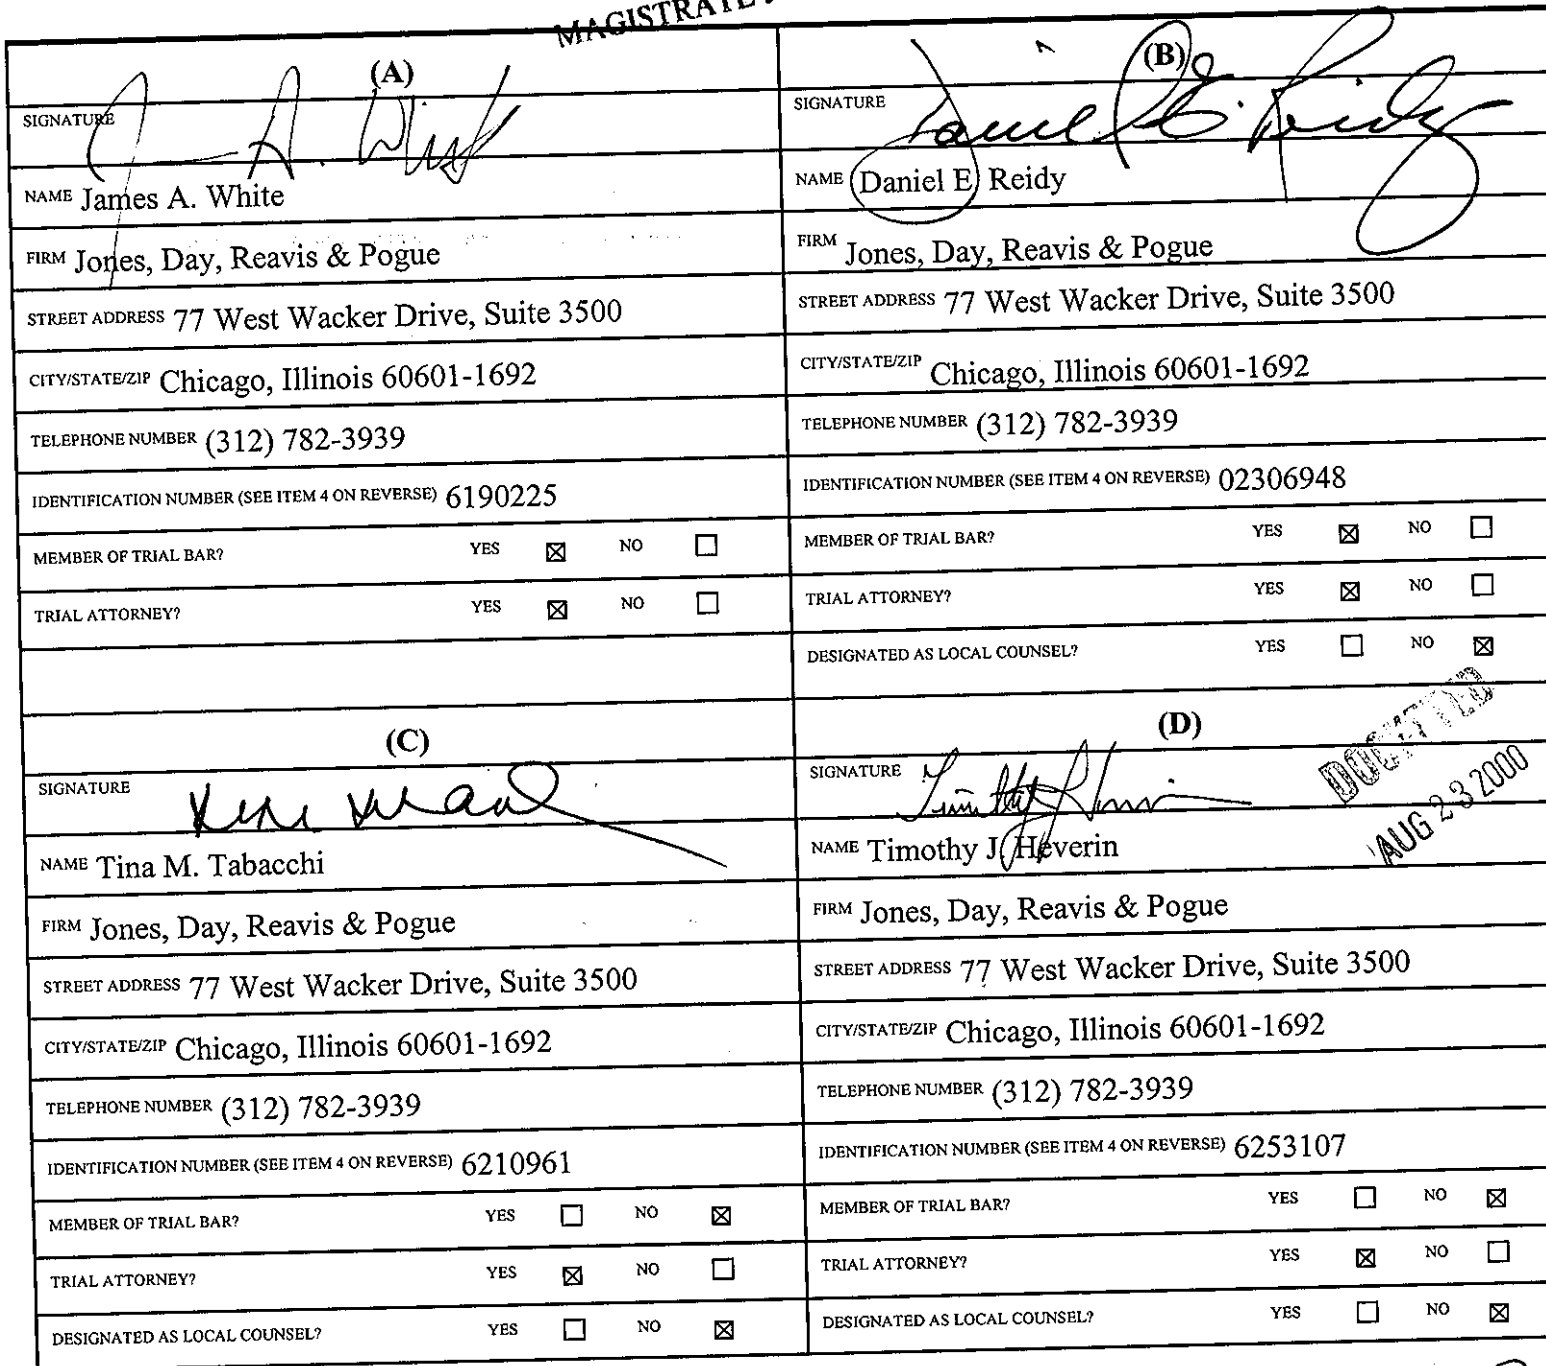 MAGISTRATE
(A)
SIGNATURE James A. White
NAME James A. White
FIRM Jones, Day, Reavis & Pogue
STREET ADDRESS 77 West Wacker Drive, Suite 3500
CITY/STATE/ZIP Chicago, Illinois 60601-1692
TELEPHONE NUMBER (312) 782-3939
IDENTIFICATION NUMBER (SEE ITEM 4 ON REVERSE) 6190225
MEMBER OF TRIAL BAR? YES ☒ NO ☐
TRIAL ATTORNEY? YES ☒ NO ☐
(B)
SIGNATURE Daniel E. Reidy
NAME Daniel E. Reidy
FIRM Jones, Day, Reavis & Pogue
STREET ADDRESS 77 West Wacker Drive, Suite 3500
CITY/STATE/ZIP Chicago, Illinois 60601-1692
TELEPHONE NUMBER (312) 782-3939
IDENTIFICATION NUMBER (SEE ITEM 4 ON REVERSE) 02306948
MEMBER OF TRIAL BAR? YES ☒ NO ☐
TRIAL ATTORNEY? YES ☒ NO ☐
DESIGNATED AS LOCAL COUNSEL? YES ☐ NO ☒
(C)
SIGNATURE
NAME Tina M. Tabacchi
FIRM Jones, Day, Reavis & Pogue
STREET ADDRESS 77 West Wacker Drive, Suite 3500
CITY/STATE/ZIP Chicago, Illinois 60601-1692
TELEPHONE NUMBER (312) 782-3939
IDENTIFICATION NUMBER (SEE ITEM 4 ON REVERSE) 6210961
MEMBER OF TRIAL BAR? YES ☐ NO ☒
TRIAL ATTORNEY? YES ☒ NO ☐
DESIGNATED AS LOCAL COUNSEL? YES ☐ NO ☒
(D)
SIGNATURE
DOCKETED
AUG 23 2000
NAME Timothy J. Heverin
FIRM Jones, Day, Reavis & Pogue
STREET ADDRESS 77 West Wacker Drive, Suite 3500
CITY/STATE/ZIP Chicago, Illinois 60601-1692
TELEPHONE NUMBER (312) 782-3939
IDENTIFICATION NUMBER (SEE ITEM 4 ON REVERSE) 6253107
MEMBER OF TRIAL BAR? YES ☐ NO ☒
TRIAL ATTORNEY? YES ☒ NO ☐
DESIGNATED AS LOCAL COUNSEL? YES ☐ NO ☒